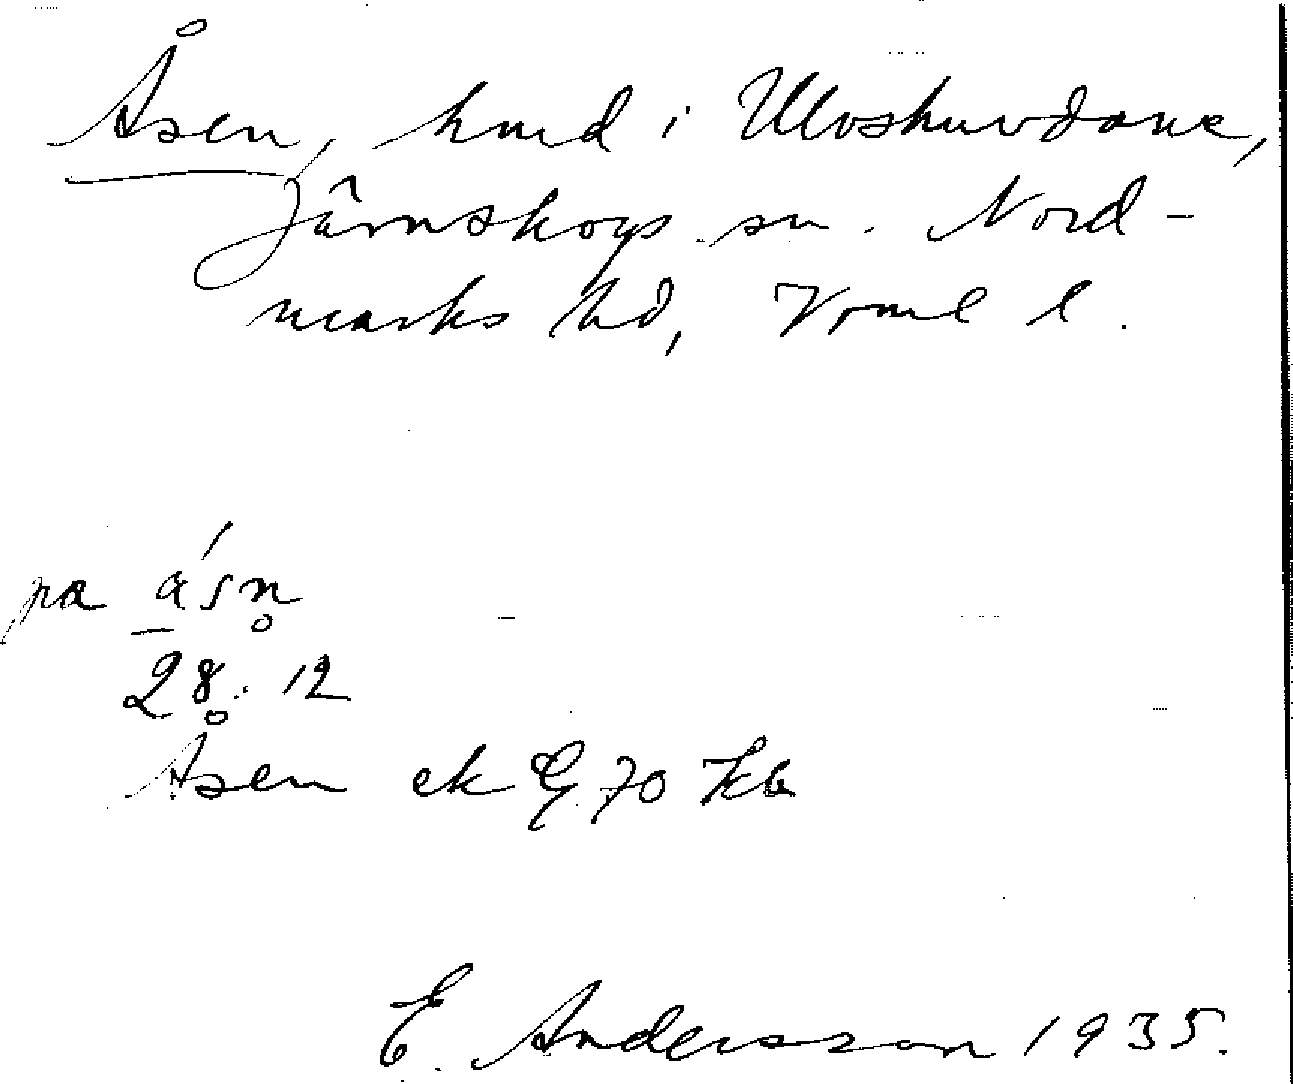 Åsen, hmd i Ulvshuvdane,
Järnskogs sn. Nord-
marks hd, Vrml l.
pa åsn̥
28. 12
Åsen ek G 70 Kb
E. Andersson 1935.